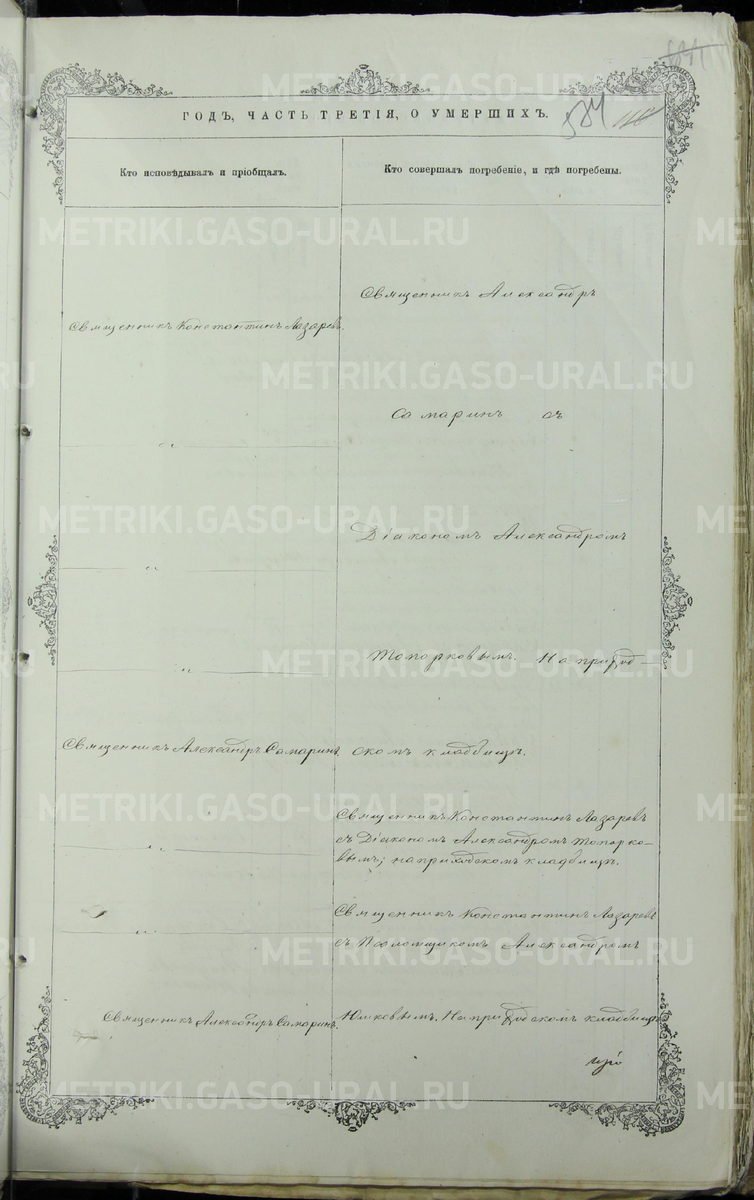 584
ГОДЪ, ЧАСТЬ ТРЕТІЯ, О УМЕРШИХЪ.
Кто исповѣдывалъ и пріобщалъ.
Кто совершалъ погребеніе, и гдѣ погребены.
Священникъ Константинъ Лазаревъ.
— „ —
— „ —
— „ —
Священникъ Александръ Самаринъ.
— „ —
— „ —
Священникъ Александръ Самаринъ.
Священникъ Александръ
Самаринъ съ
Діакономъ Александромъ
Топорковымъ. На приход-
скомъ кладбищѣ.
Священникъ Константинъ Лазаревъ
съ Діакономъ Александромъ Топорко-
вымъ; на приходскомъ кладбищѣ.
Священникъ Константинъ Лазаревъ
съ Псаломщикомъ Александромъ
На приходскомъ кладбищѣ
METRIKI.GASO-URAL.RU